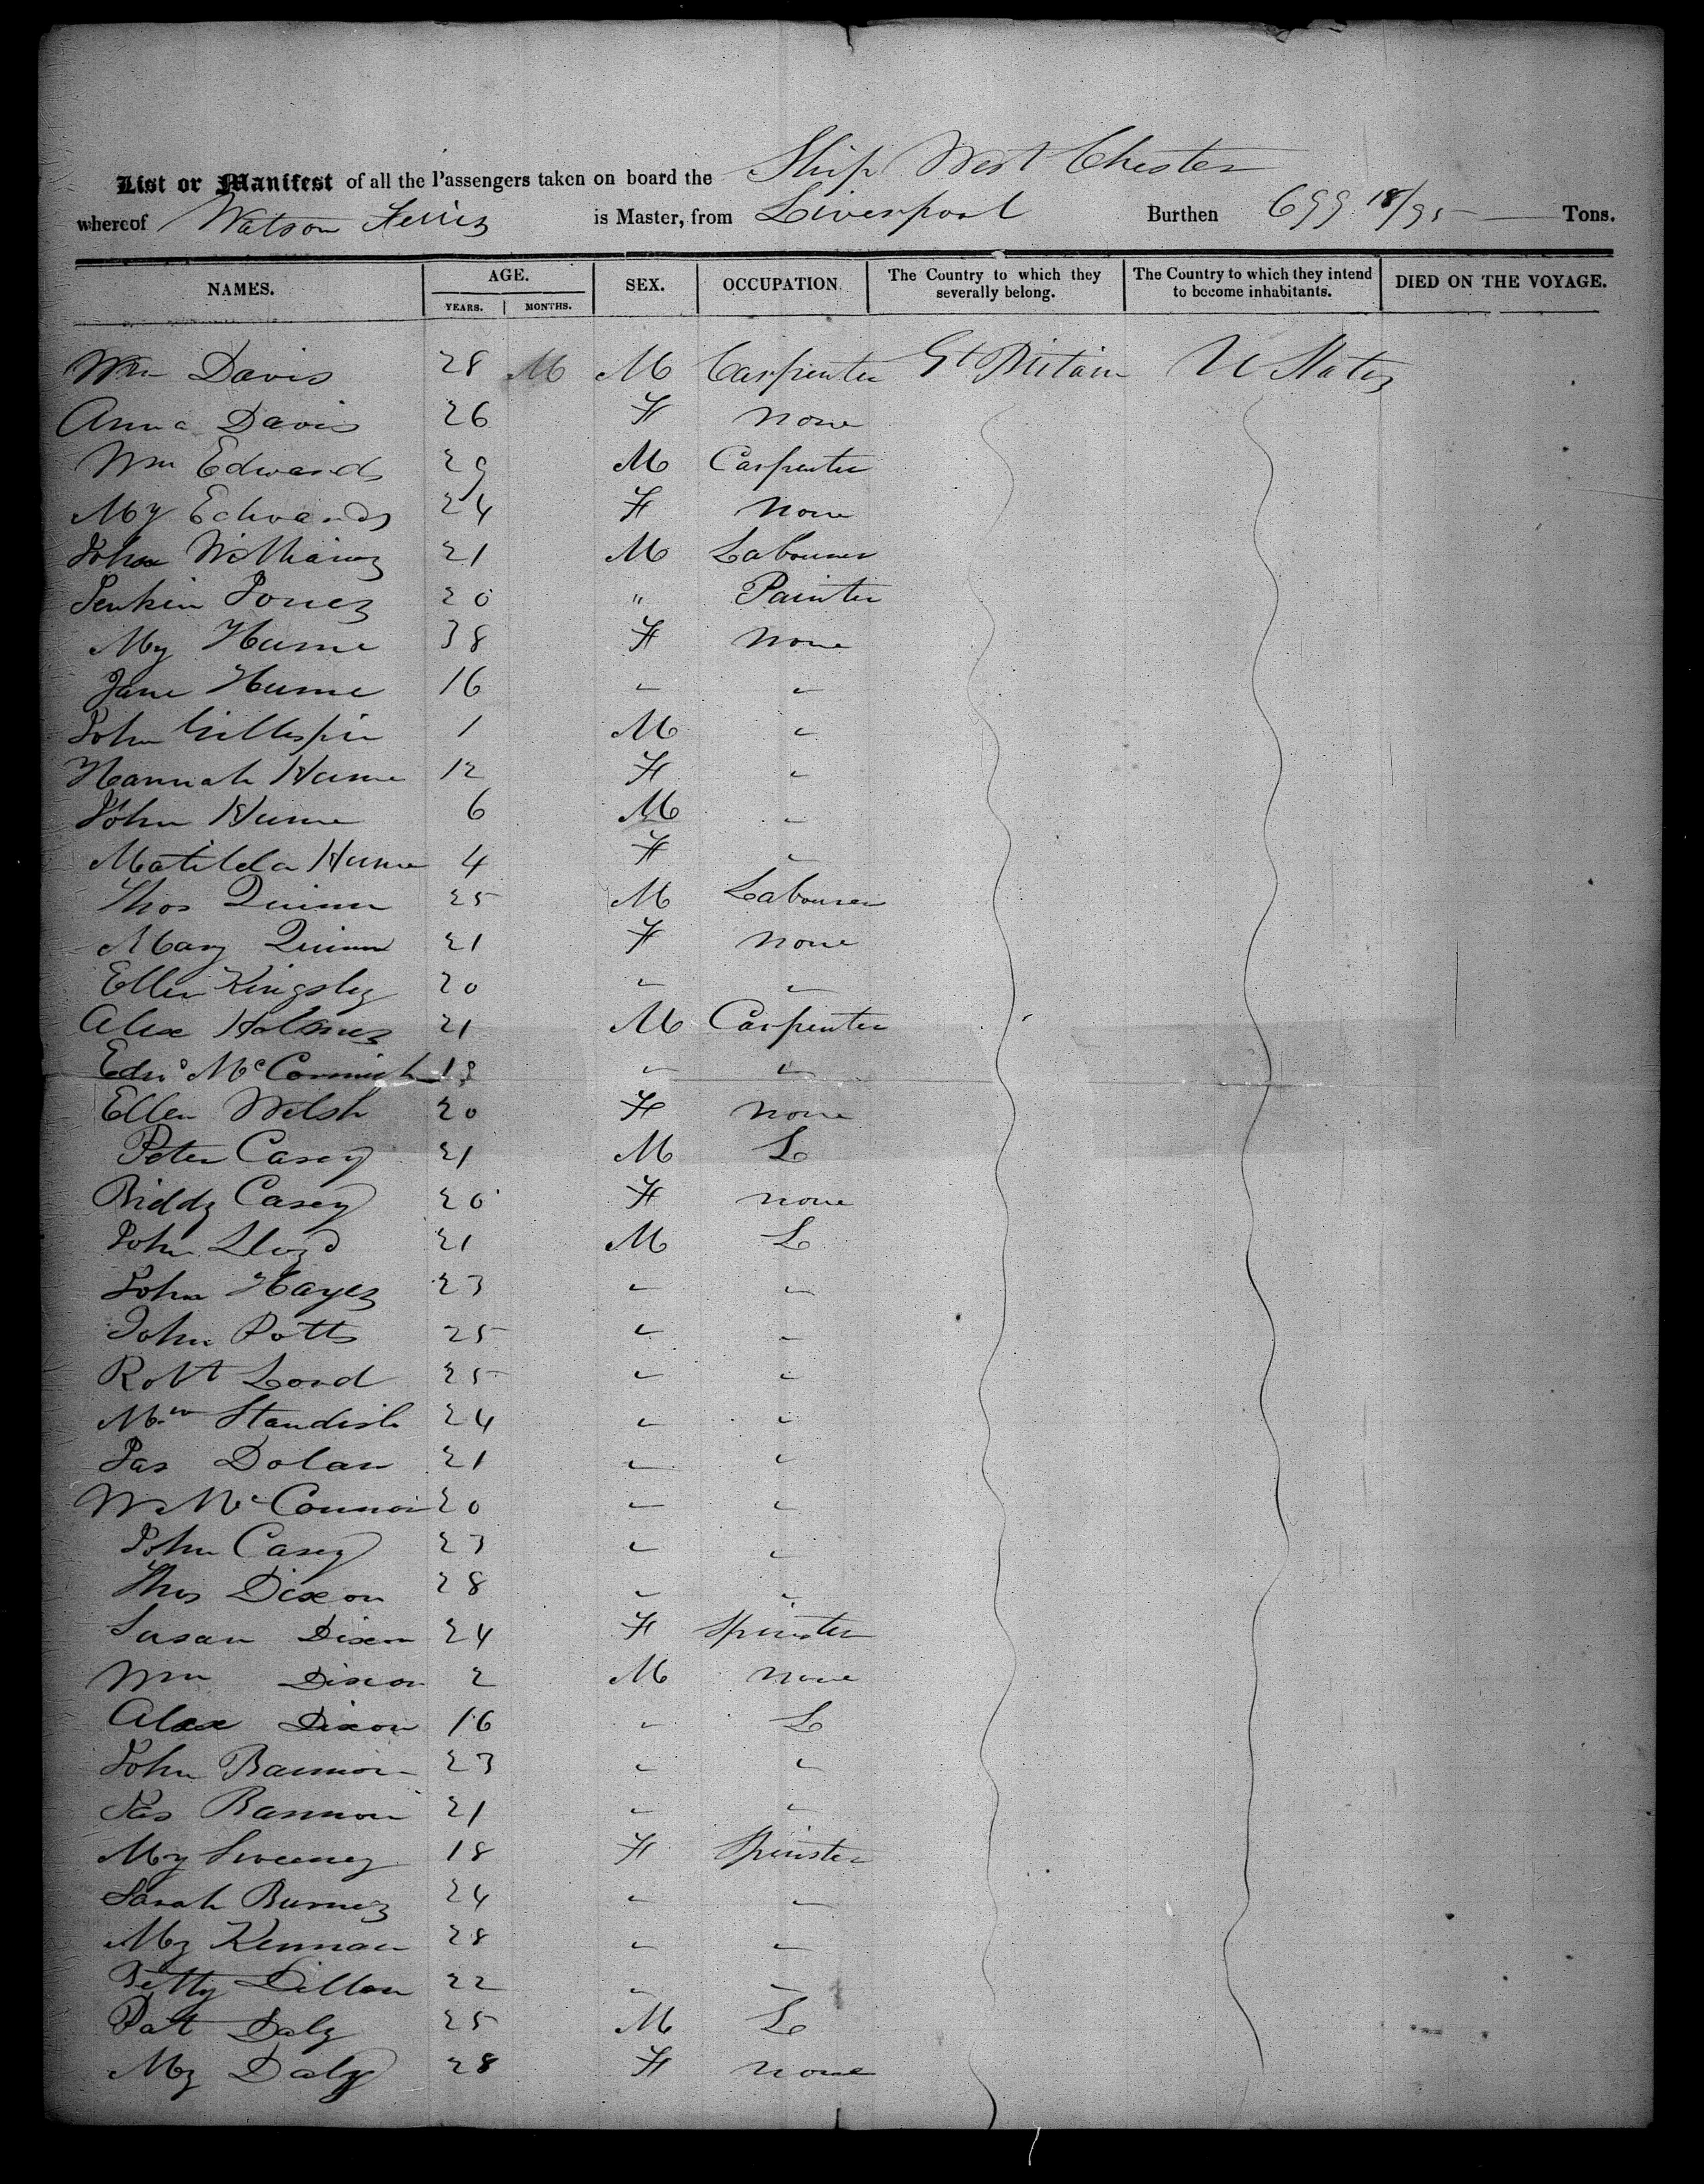 List or Manifest of all the Passengers taken on board the Ship West Chester
whereof Watson Ferris is Master, from Liverpool Burthen 699 18/95 Tons.
NAMES. AGE. SEX. OCCUPATION. The Country to which they severally belong. The Country to which they intend to become inhabitants. DIED ON THE VOYAGE.
YEARS. MONTHS.
Wm Davis 28 M M Carpenter Gt Britain U States
Anna Davis 26 F none
Wm Edwards 29 M Carpenter
My Edwards 24 F none
John Williams 21 M Labourer
Jenkin Jones 20 " Painter
My Hume 38 F none
Jane Hume 16 " "
John Gillespie 1 M "
Hannah Hume 12 F "
John Hume 6 M "
Matilda Hume 4 F "
Thos Quinn 25 M Labourer
Mary Quinn 21 F none
Ellen Kingsley 20 " "
Alex Holmes 21 M Carpenter
Edwd McCormick 18 " "
Ellen Welsh 20 F none
Peter Casey 21 M L
Biddy Casey 20 F none
John Lloyd 21 M L
John Hayes 23 " "
John Potts 25 " "
Robt Lord 25 " "
Standish 24 " "
Jas Dolan 21 " "
Wm McConnor 20 " "
John Casey 23 " "
Thos Dixon 28 " "
Susan Dixon 24 F Spinster
Wm Dixon 2 M none
Alex Dixon 16 " L
John Bannon 23 " "
Jas Bannon 21 " "
My Sweeney 18 F Spinster
Sarah Burnes 24 " "
My Kennan 28 " "
Betty Dillon 22 " "
Pat Daly 25 M L
My Daly 28 F none